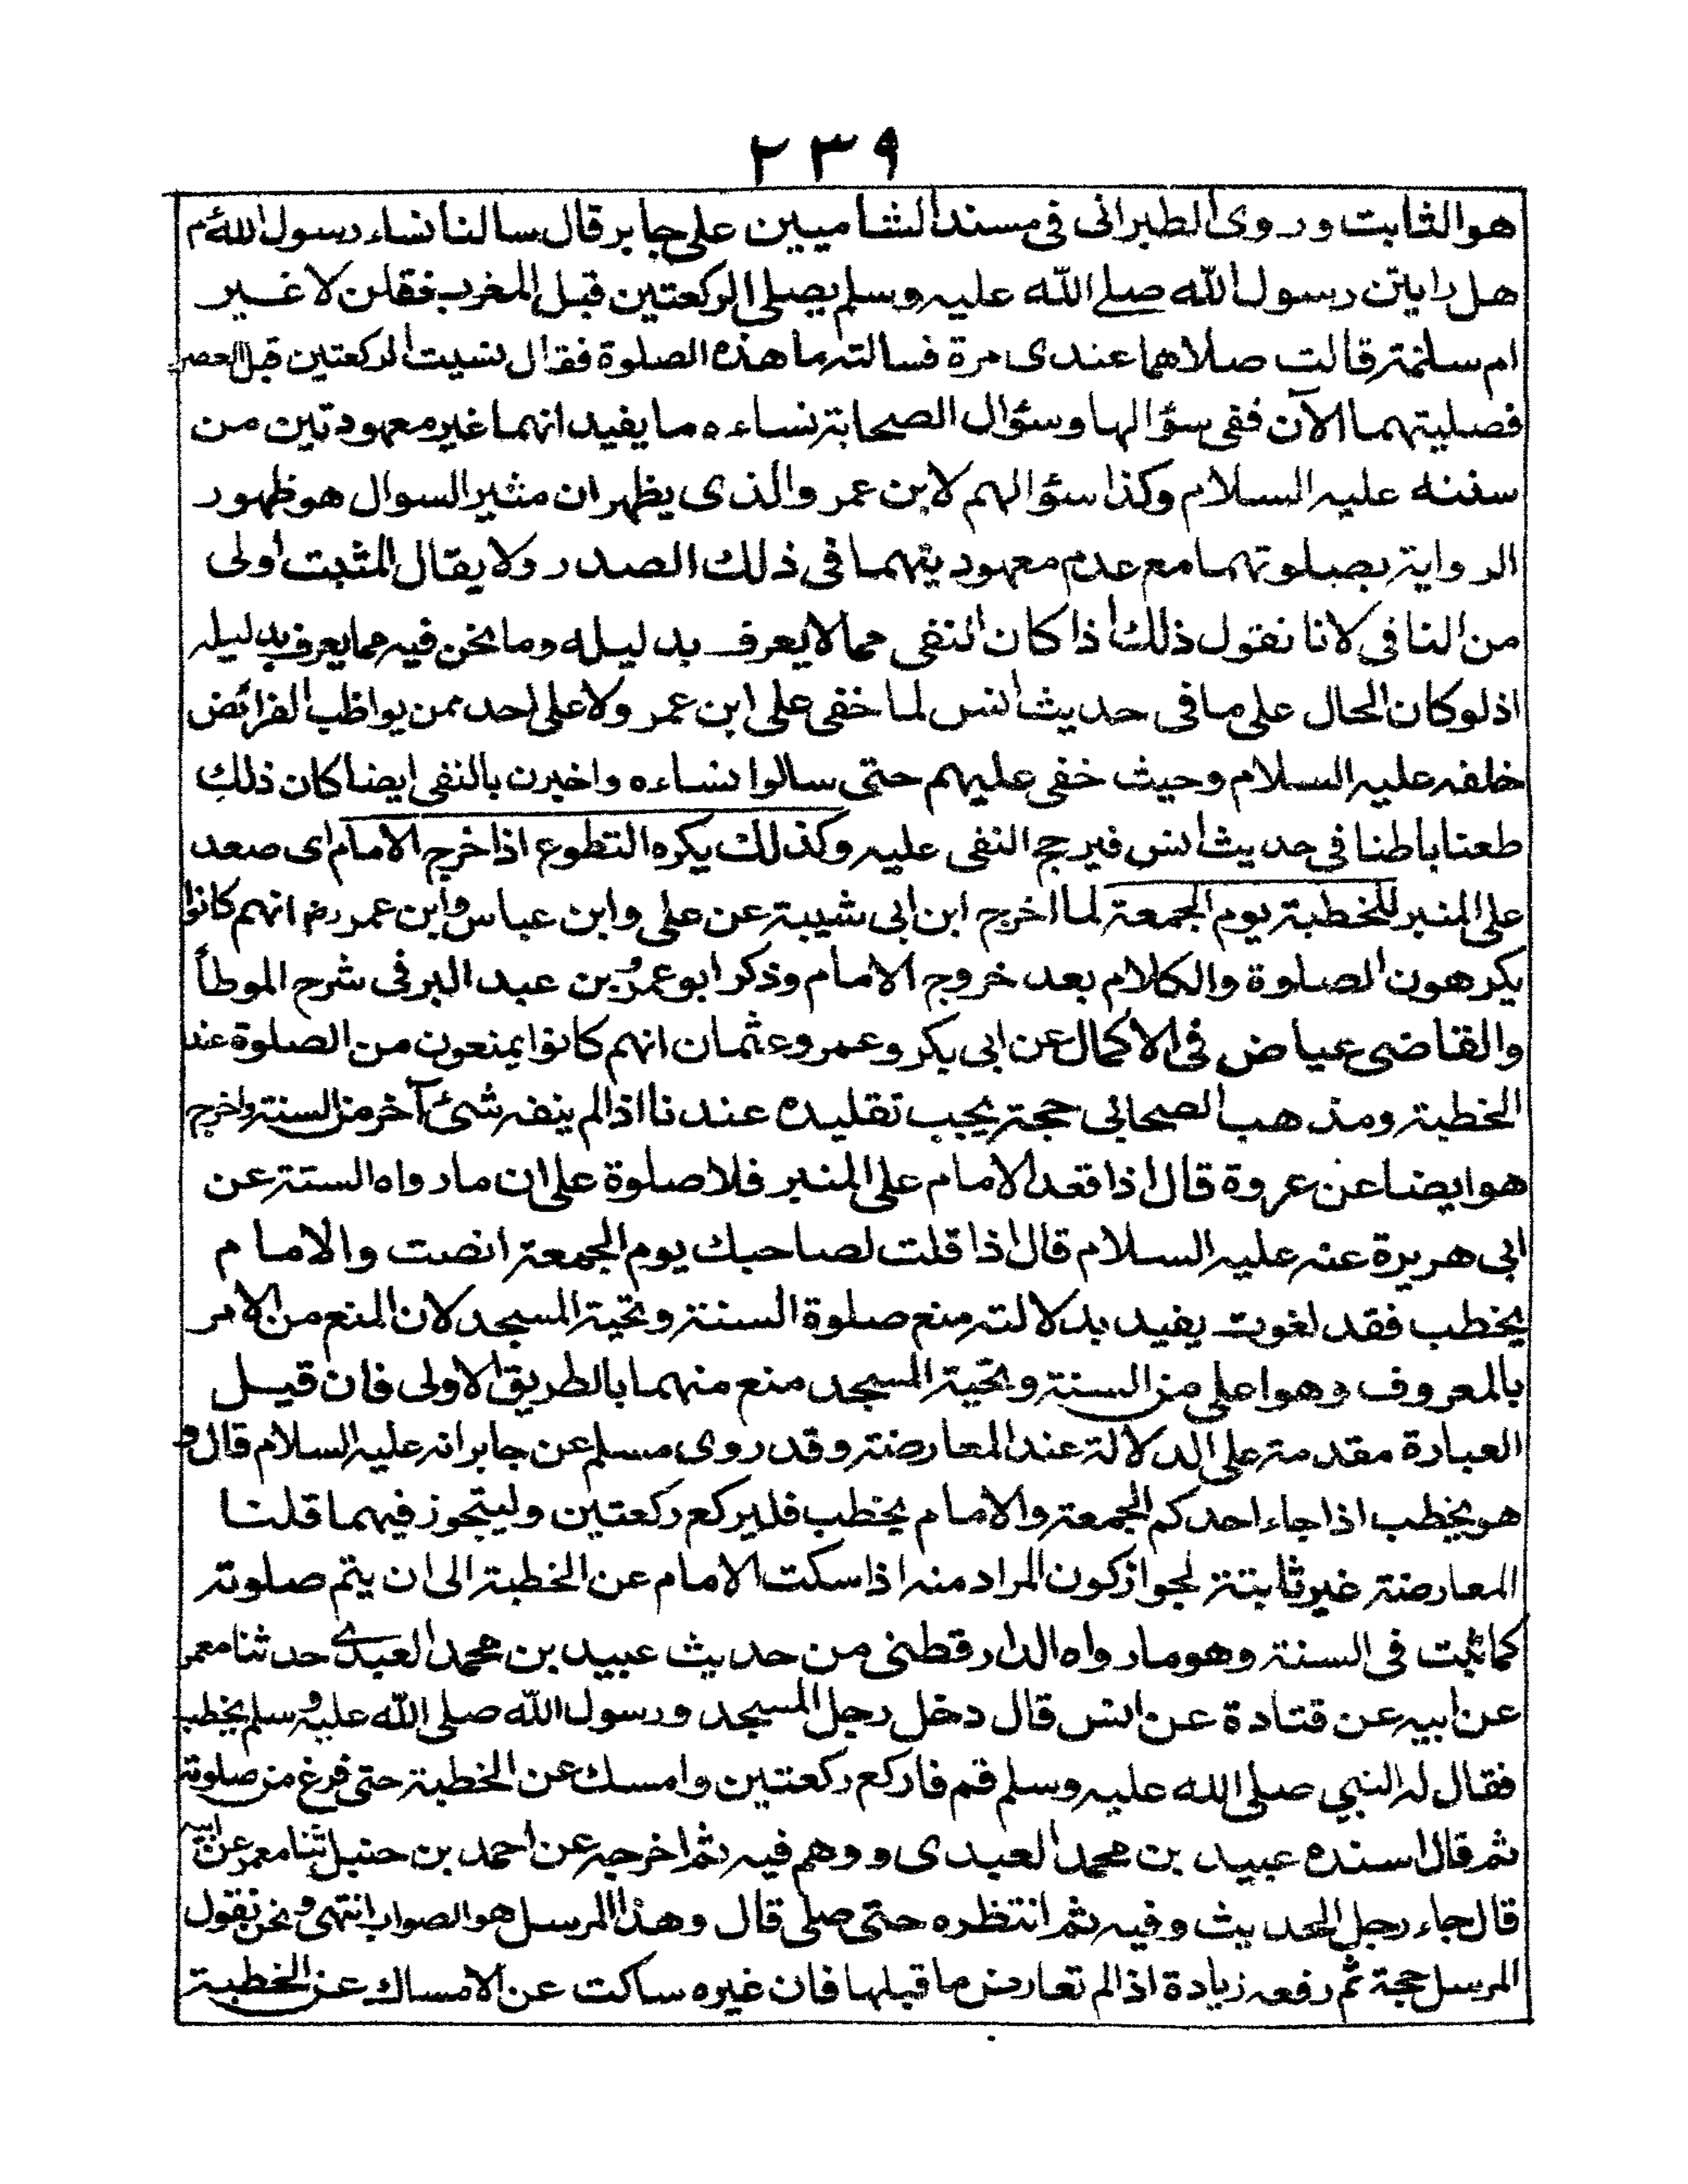 ٢٣٩
هو الثابت وروى الطبرانى فى مسند الشاميين على جابر قال سالنا نساء رسول اللهؐ م
هل رايتن رسول الله صلے الله عليه وسلم يصلى الركعتين قبل المغرب فقلن لا غير
ام سلمة قالت صلاهما عندى مرة فسالته ما هذه الصلوة فقال نسيت الركعتين قبل العصر
فصليتهما الآن ففى سؤالها وسؤال الصحابة نساءه ما يفيد انهما غير معهودتين من
سننه عليه السلام وكذا سؤالهم لابن عمر والذى يظهر ان مثير السوال هو ظهور
الرواية بصلوتهما مع عدم معهوديتهما فى ذلك الصدر ولا يقال المثبت اولى
من النافى لانا نقول ذلك اذا كان النفى مما لا يعرف بدليله وما نحن فيه مما يعرف بدليله
اذ لو كان الحال على ما فى حديث انس لما خفى على ابن عمر ولا على احد ممن يواظب الفرائض
خلفه عليه السلام وحيث خفى عليهم حتى سالوا نساءه واخبرن بالنفى ايضا كان ذلك
طعنا باطنا فى حديث انس فيرجح النفى عليه وكذلك يكره التطوع اذا خرج الامام اى صعد
على المنبر للخطبة يوم الجمعة لما اخرج ابن ابى شيبة عن على وابن عباس وابن عمر رضـ انهم كانوا
يكرهون الصلوة والكلام بعد خروج الامام وذكر ابو عمرو بن عبد البر فى شرح الموطأ
والقاضى عياض فى الاكمال عن ابى بكر وعمر وعثمان انهم كانوا يمنعون من الصلوة عند
الخطبة ومذهب الصحابى حجة يجب تقليده عندنا اذا لم ينفه شئ آخر من السنة واخرج
هو ايضا عن عروة قال اذا قعد الامام على المنبر فلا صلوة على ان ما رواه الستة عن
ابى هريرة عنه عليه السلام قال اذا قلت لصاحبك يوم الجمعة انصت والامام
يخطب فقد لغوت يفيد بدلالته منع صلوة السنة وتحية المسجد لان المنع من الامر
بالمعروف وهو اعلى من السنة وتحية المسجد منع منهما بالطريق الاولى فان قيل
العبارة مقدمة على الدلالة عند المعارضة وقد روى مسلم عن جابر انه عليه السلام قال و
هو يخطب اذا جاء احدكم الجمعة والامام يخطب فليركع ركعتين وليتجوز فيهما قلنا
المعارضة غير ثابتة لجواز كون المراد منه اذا سكت الامام عن الخطبة الى ان يتم صلوته
كما ثبت فى السنة وهو ما رواه الدارقطنى من حديث عبيد بن محمد العبدى حدثنا معمر
عن ابيه عن قتادة عن انس قال دخل رجل المسجد ورسول الله صلى الله عليه وسلم يخطب
فقال له النبي صلى الله عليه وسلم قم فاركع ركعتين وامسك عن الخطبة حتى فرغ من صلوته
ثم قال اسنده عبيد بن محمد العبدى ووهم فيه ثم اخرجه عن احمد بن حنبل ثنا معمر عن ابيه
قال جاء رجل الحديث وفيه ثم انتظره حتى صلى قال وهذا المرسل هو الصواب انتهى ونحن نقول
المرسل حجة ثم رفعه زيادة اذا لم تعارض ما قبلها فان غيره ساكت عن الامساك عن الخطبة